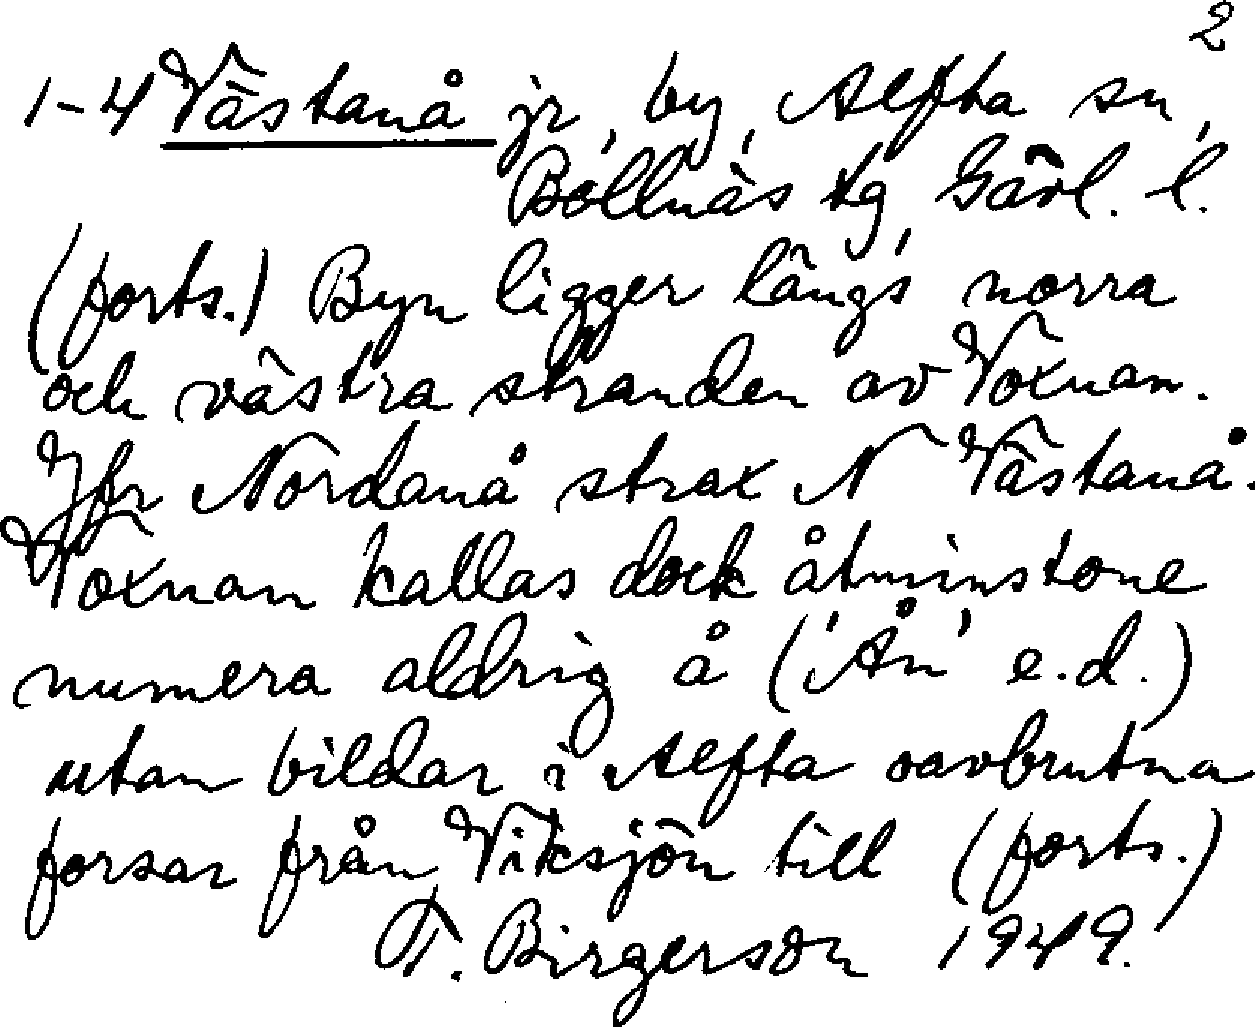 2
1-4 Västanå jr, by, Alfta sn,
Bollnäs tg, Gävl. l.
(forts.) Byn ligger längs norra
och västra stranden av Voxnan.
Jfr Nordanå strax N Västanå.
Voxnan kallas dock åtminstone
numera aldrig å ('Ån' e.d.)
utan bildar i Alfta oavbrutna
forsar från Viksjön till (forts.)
F. Birgerson 1949.